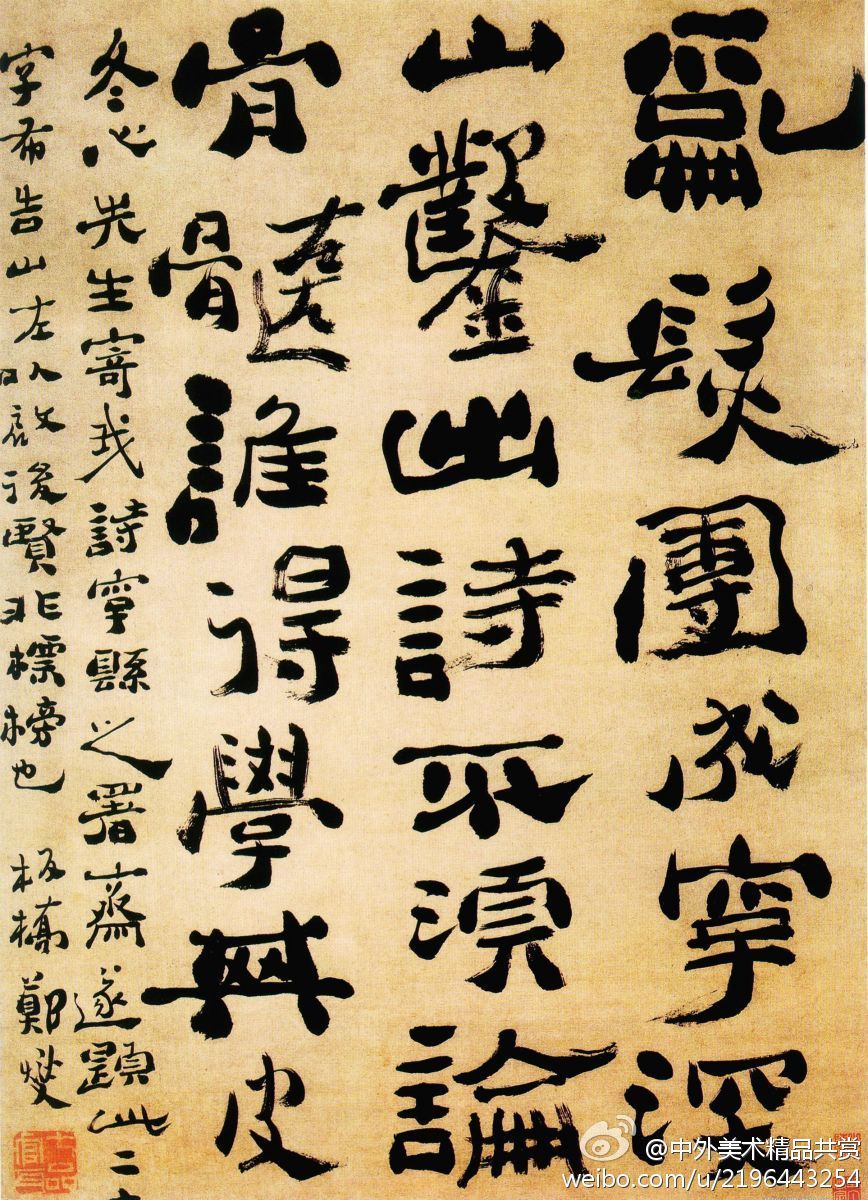 亂髮團成字深
山鑿出詩不須論
骨髓誰得學其皮
冬心先生寄我詩字縣之署齋遂題此二十
字布告山左以啟後賢非標榜也 板橋鄭燮
七品官耳
@中外美术精品共赏
weibo.com/u/2196443254